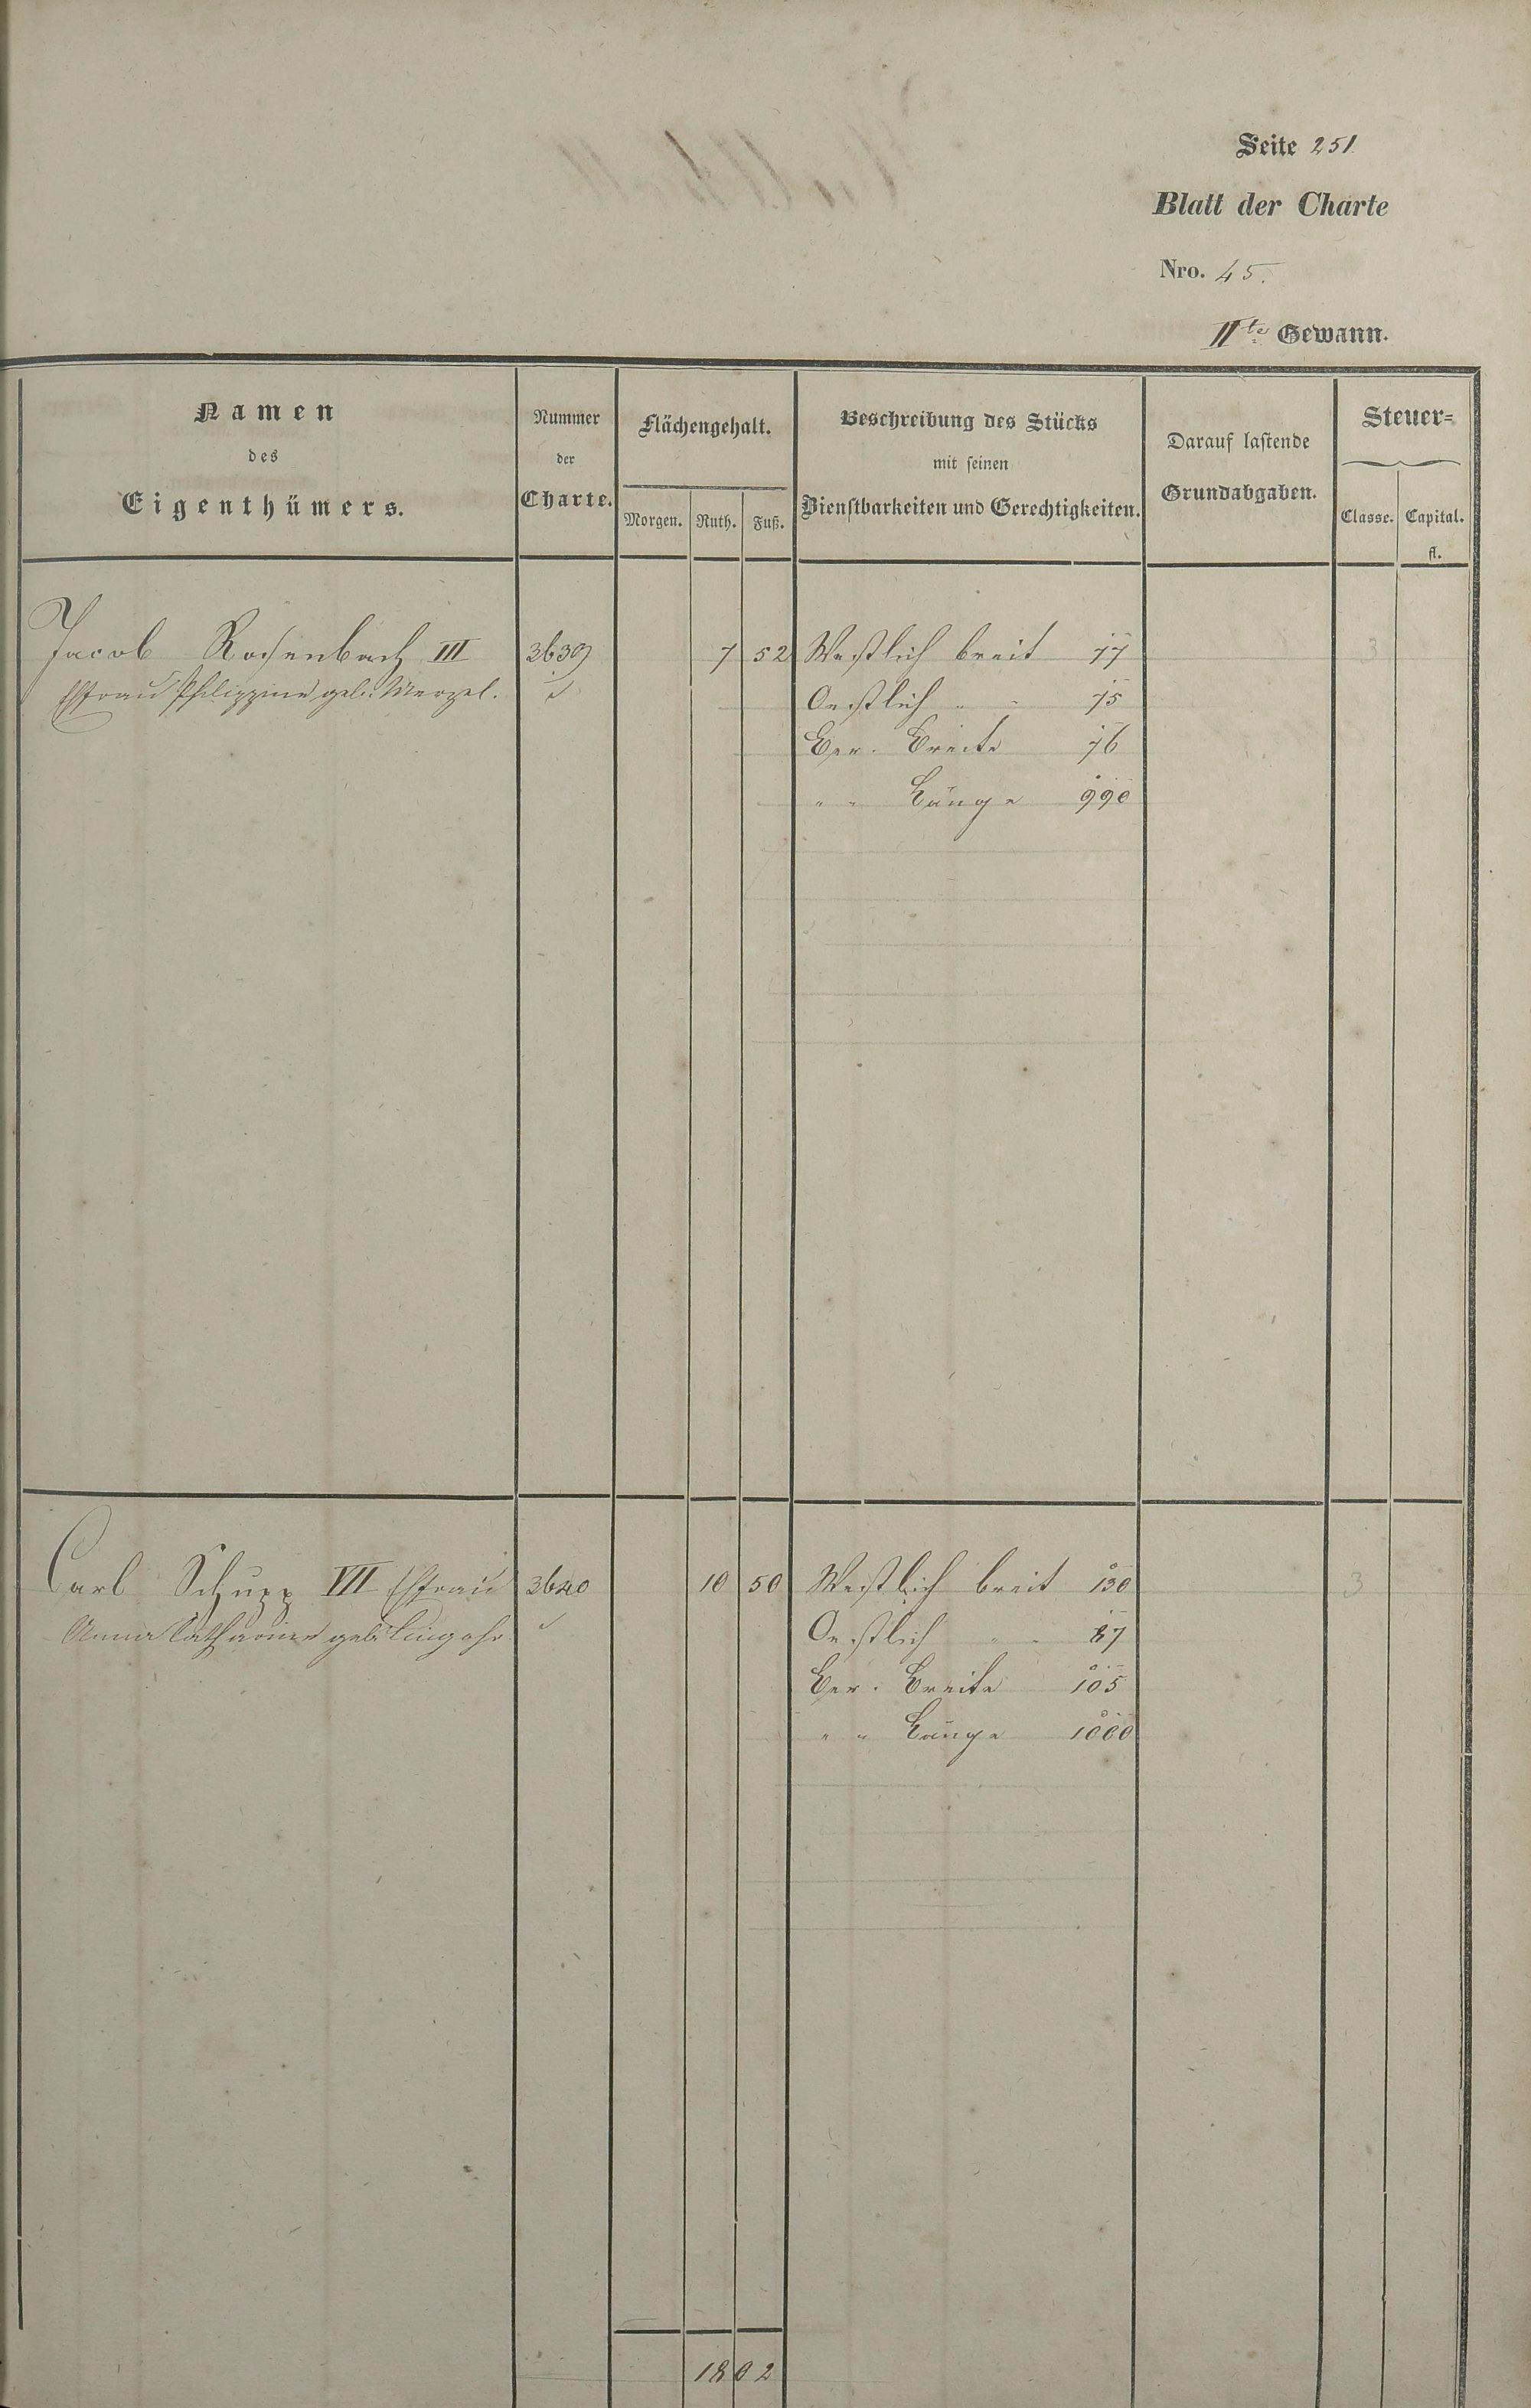 Seite 251
Blatt der Charte
Nro. 45.
IIte Gewann.
Namen des Eigenthümers.
Nummer der Charte.
Flächengehalt.
Morgen. Ruth. Fuß.
Beschreibung des Stücks mit seinen Dienstbarkeiten und Gerechtigkeiten.
Darauf lastende Grundabgaben.
Steuer-
Classe. Capital.
fl.
Jacob Rosenbach III 3639 7 52 Westlich breit 77 3
Ehfrau Philippine geb. Menzel. Oestlich " " 75
Ber. Breite 76
" " Länge 990
Carl Schupp VII Ehfrau 3640 10 50 Westlich breit 130 3
Anna Catharine geb. Oestlich " " 87
Ber. Breite 105
" " Länge 1000
18 02